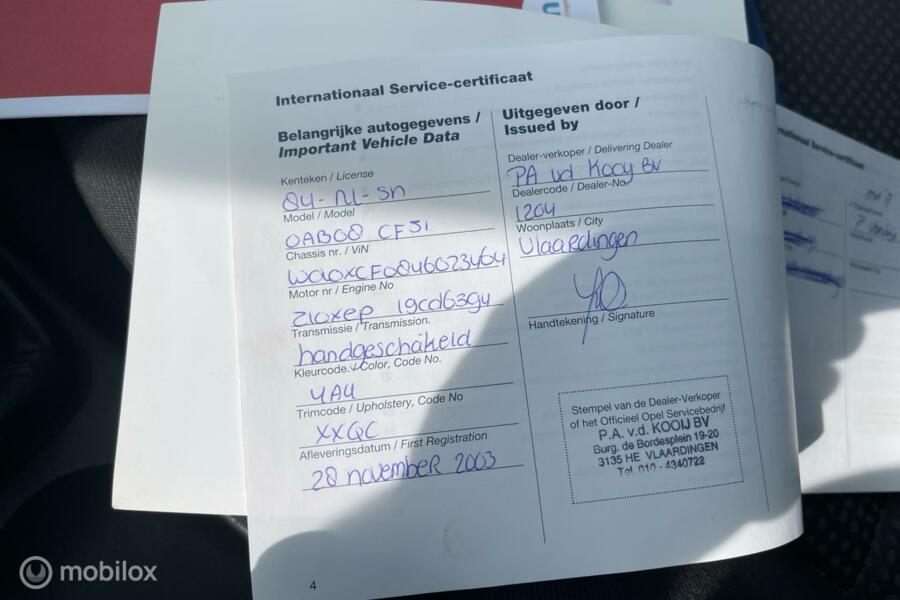 Internationaal Service-certificaat
Belangrijke autogegevens /
Important Vehicle Data
Kenteken / License
04-NL-SN
Model / Model
0AB08 CF51
Chassis nr. / VIN
Motor nr / Engine No
Z10XEP 19cd6394
Transmissie / Transmission.
handgeschakeld
Kleurcode / Color, Code No.
4AU
Trimcode / Upholstery, Code No
XXQC
Afleveringsdatum / First Registration
28 november 2003
4
Uitgegeven door /
Issued by
Dealer-verkoper / Delivering Dealer
PA vd Kooy BV
Dealercode / Dealer-No
1204
Woonplaats / City
Vlaardingen
Handtekening / Signature
Stempel van de Dealer-Verkoper
of het Officieel Opel Servicebedrijf
P.A. v.d. KOOIJ BV
Burg. de Bordesplein 19-20
3135 HE VLAARDINGEN
Tel. 010 - 4340722
Service-certificaat
mobilox